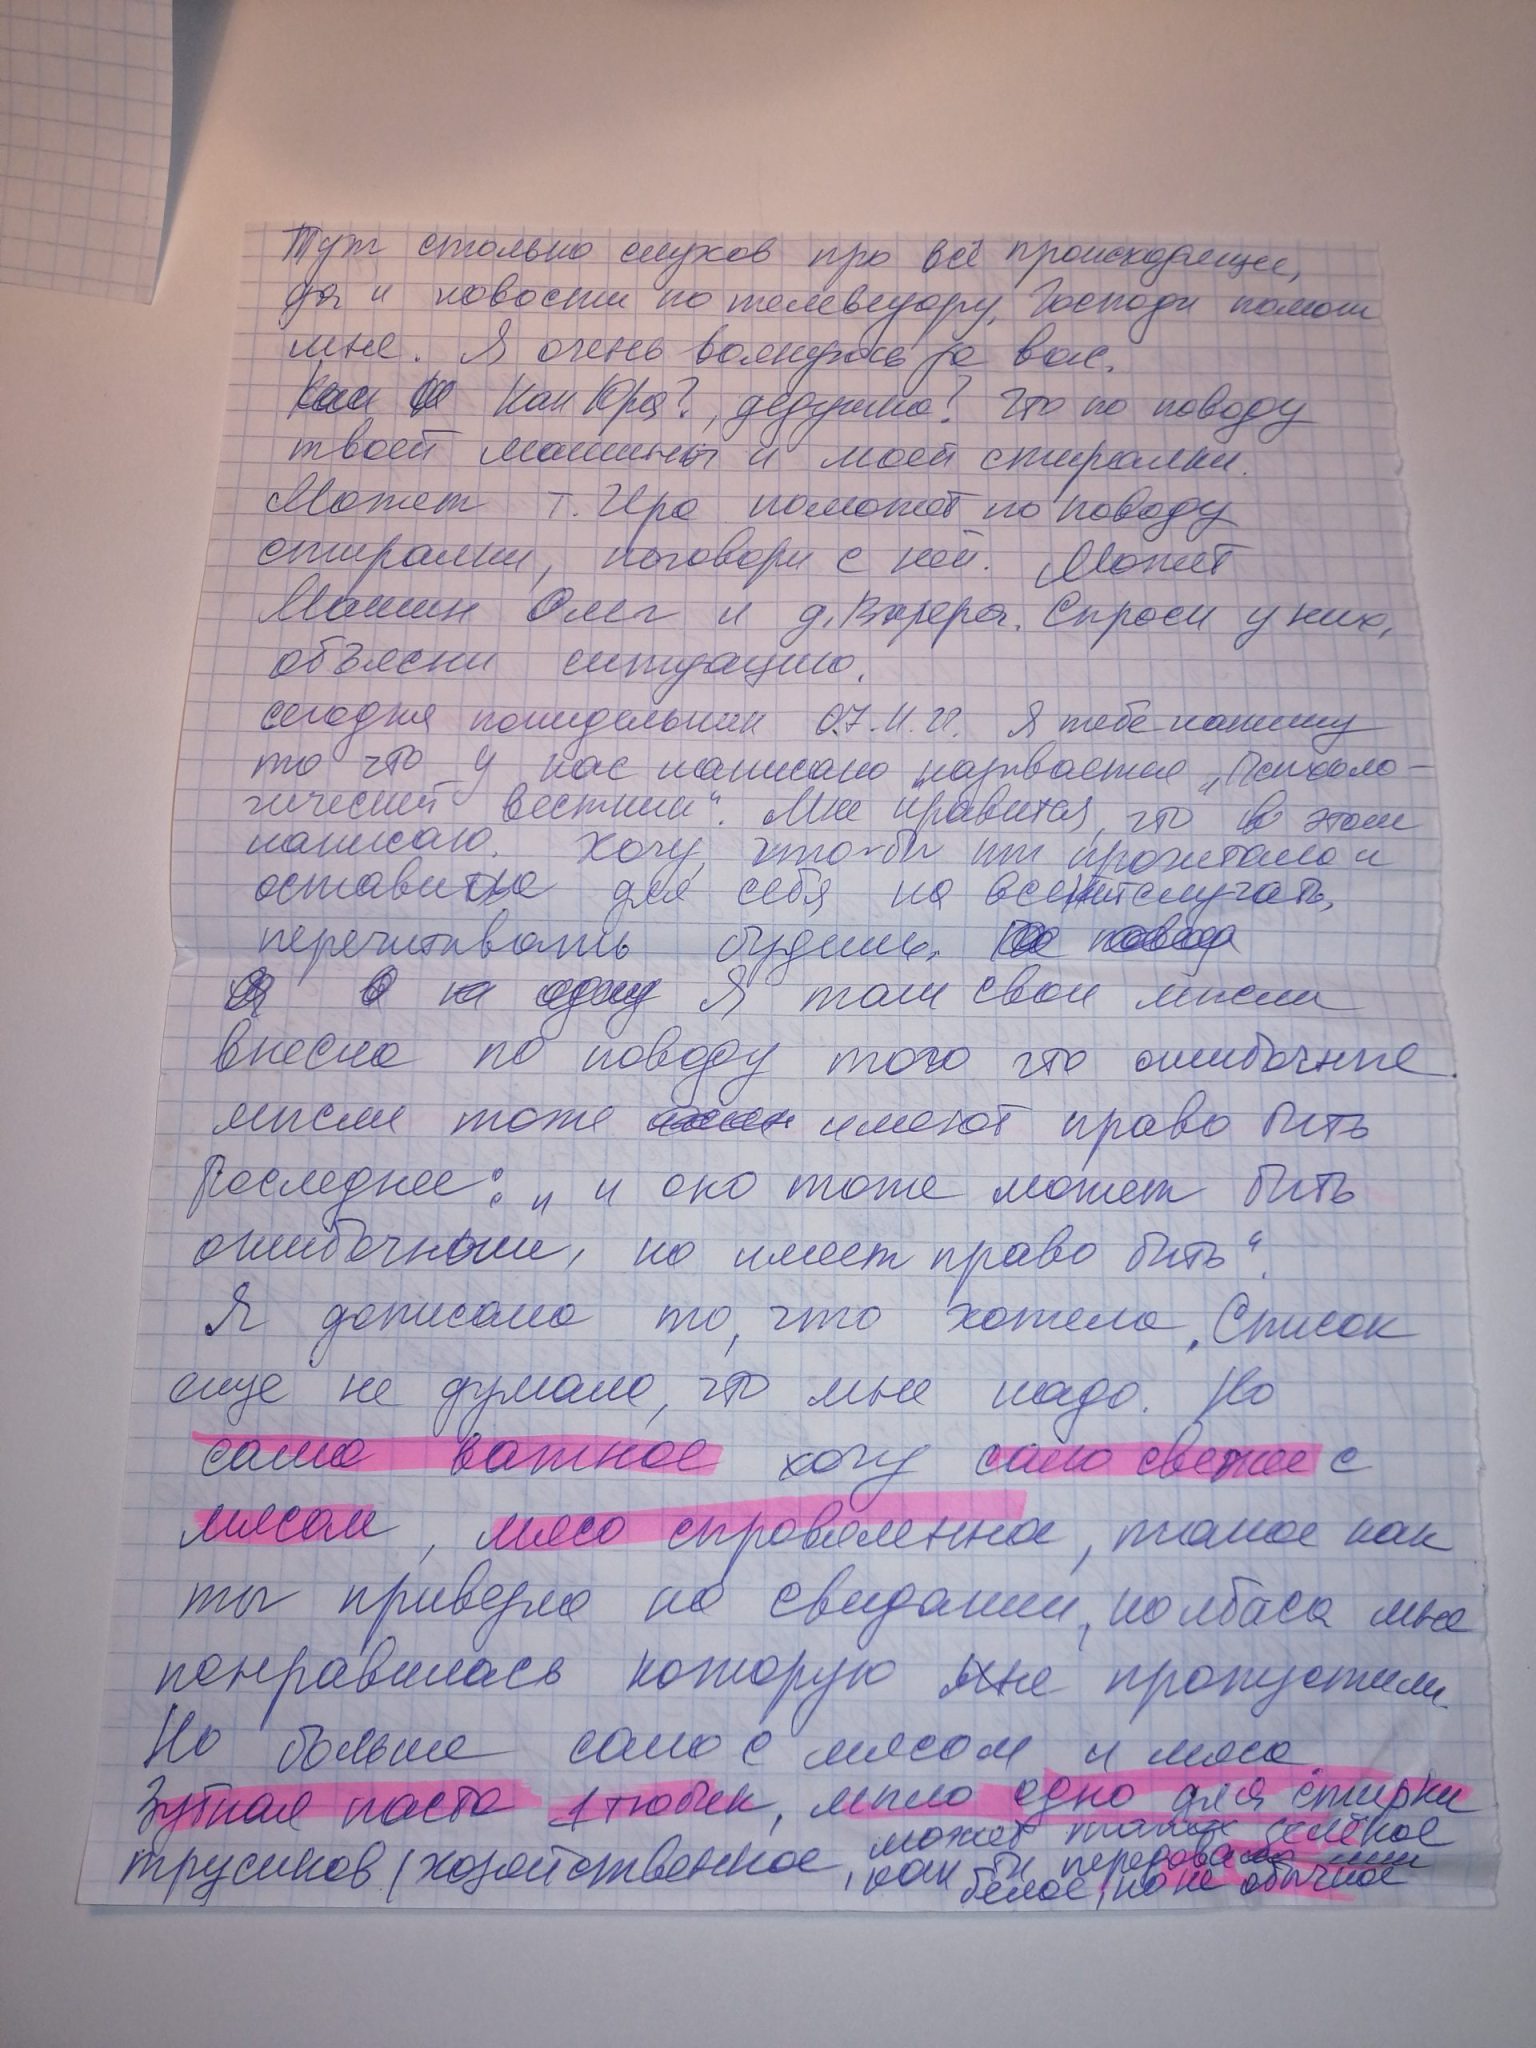 Тут столько слухов про всё происходящее,
да и новости по телевизору, Господи помоги
мне. Я очень волнуюсь за вас.
Как Юра?, дедушка? Что по поводу
твоей машины и моей стиралки.
Может т. Ира поможет по поводу
стиралки, поговори с ней. Может
Машин Олег и д. Валера. Спроси у них,
объясни ситуацию.
сегодня понидельник 07.11.22. Я тебе напишу
то что у нас написано называется „Психоло-
гический вестник“. Мне нравится, что в этом
написано. Хочу, что-бы ты прочитала и
оставила для себя на всений случать,
перечитывать будишь. По повода
Я в на одну Я там свои мысли
внесла по поводу того что ошибочные
мысли тоже имеют право быть
Последнее: „и оно тоже может быть
ошибочным, но имеет право быть“.
Я дописала то, что хотела. Список
еще не думала, что мне надо. Но
само важное хочу сало свежее с
мясом, мясо справяленное, такое как
ты привезла на свидании, колбаса мне
понравилась которую мне пропустили.
Но больше сало с мясом и мясо
Зубная паста 1 тюбик, мыло одно для стирки
трусиков (хозяйственное, может такое желтное
как бы передавала или
белое, но не обычное